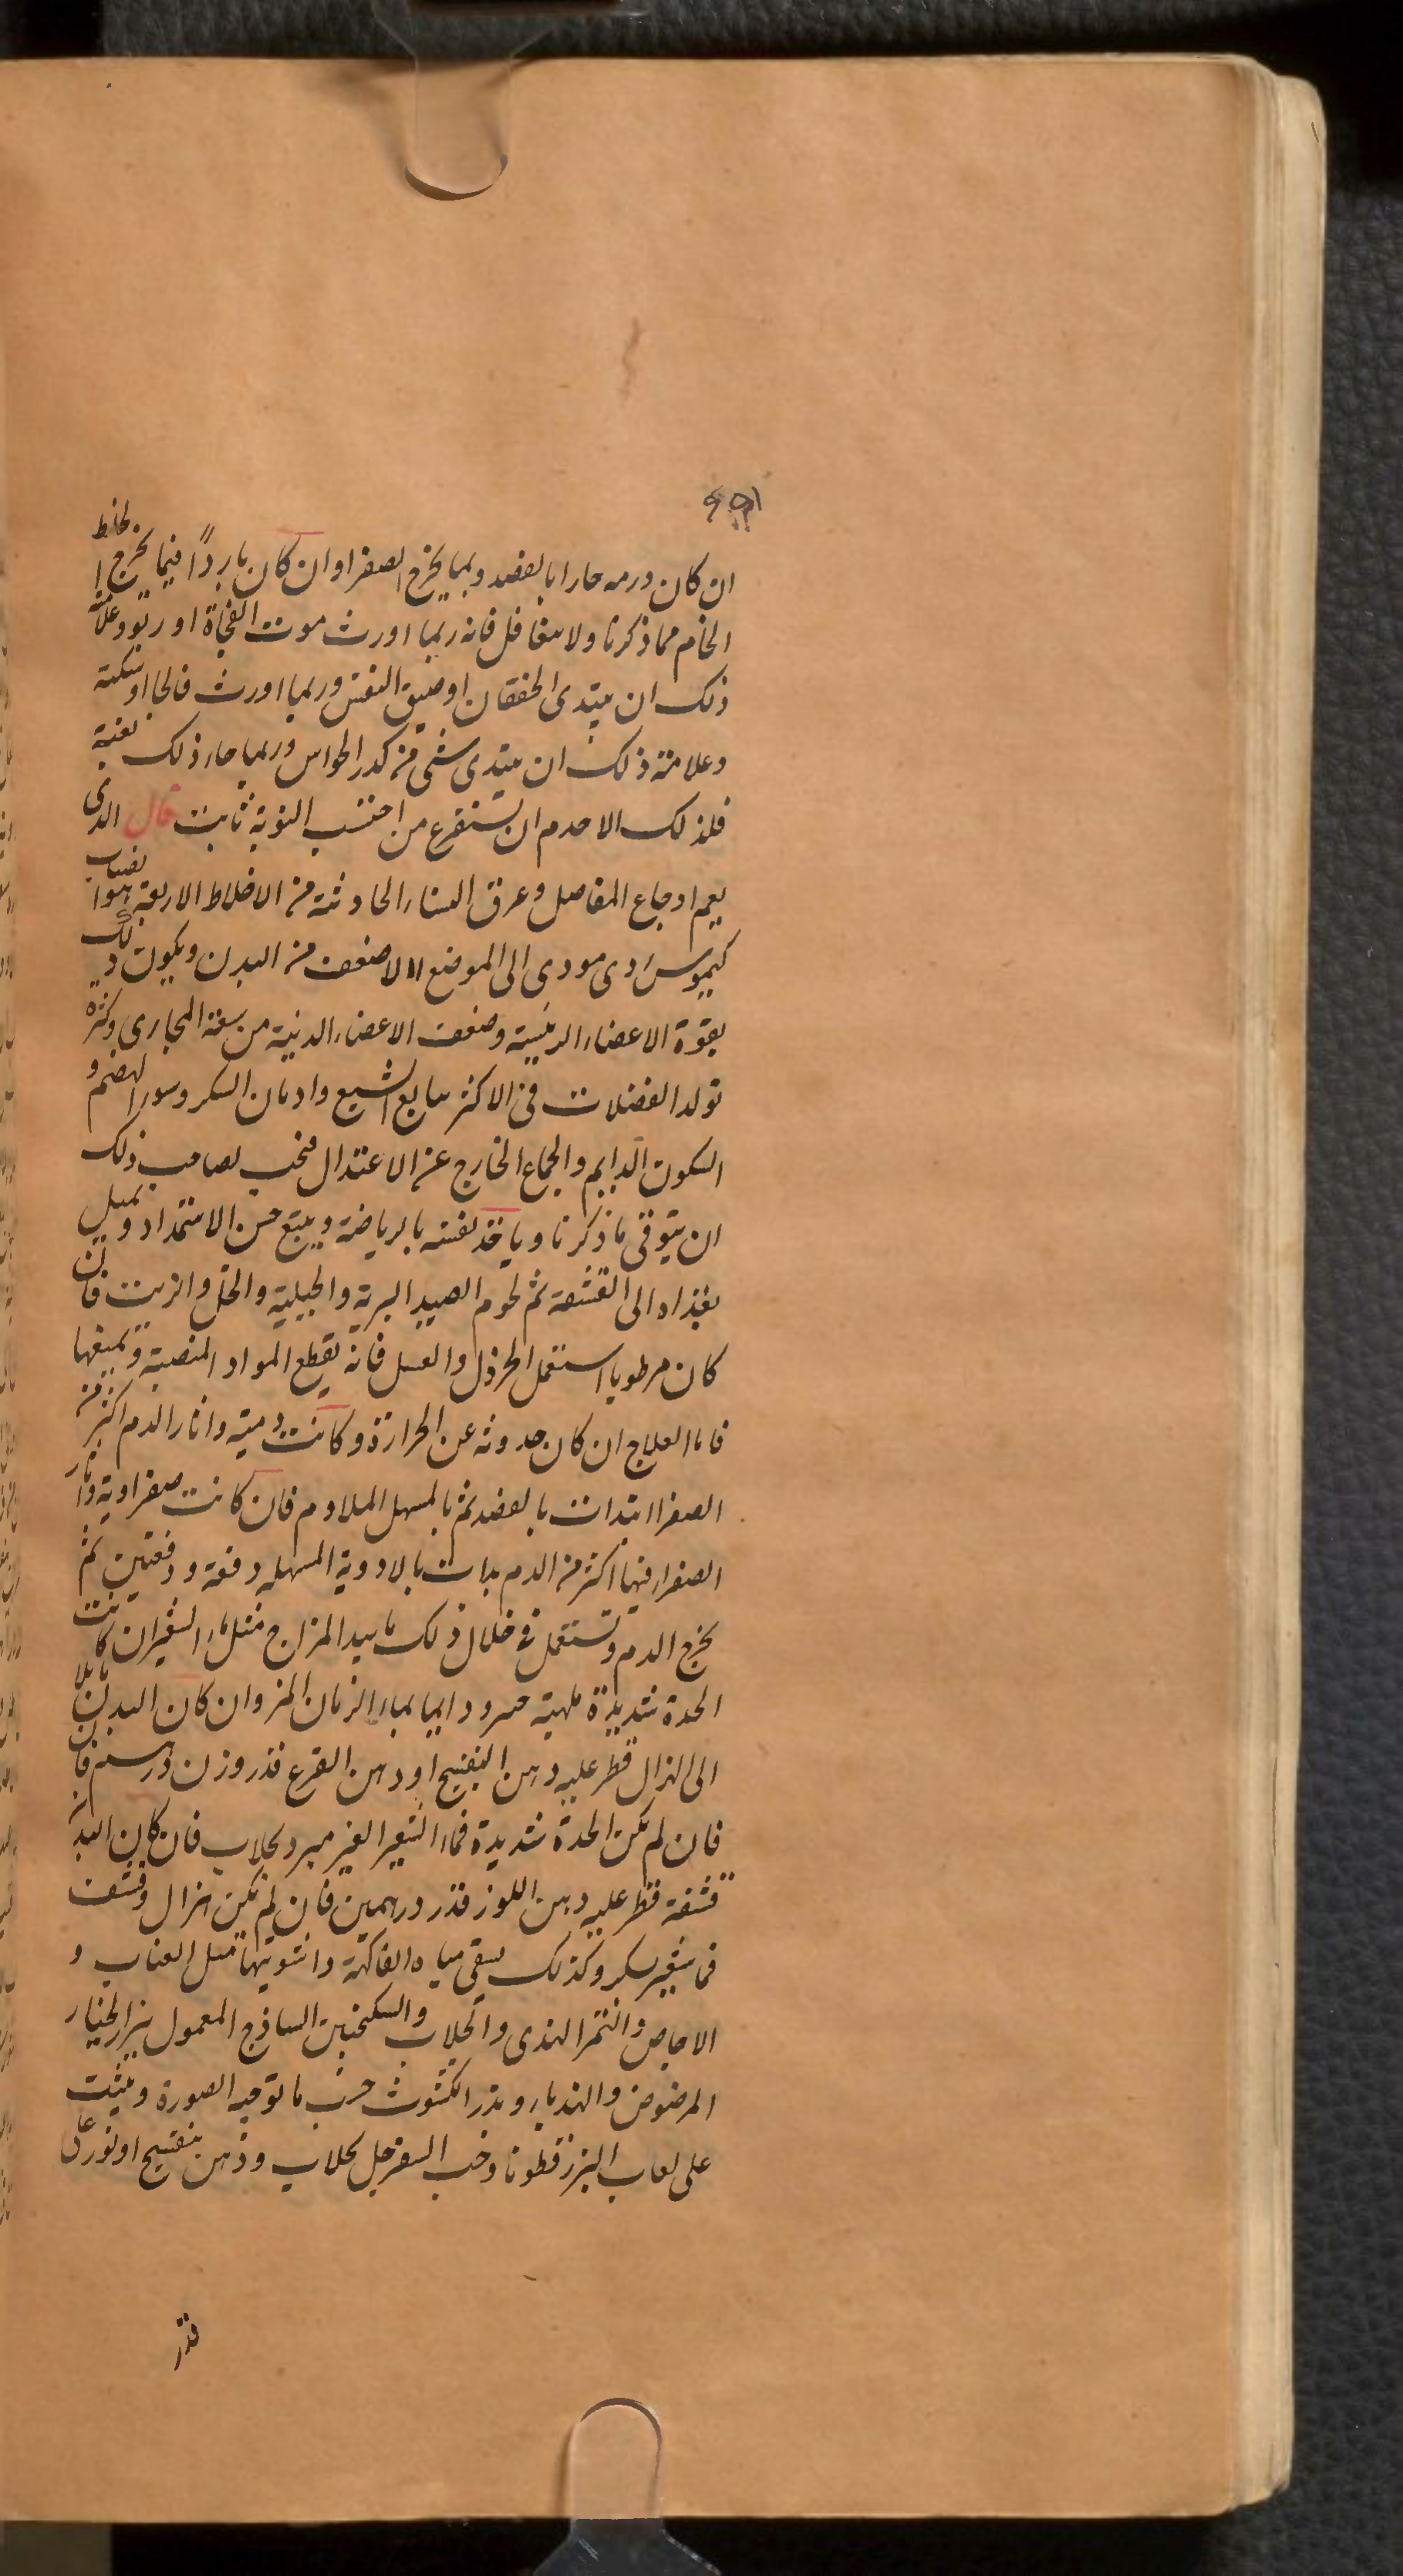 ان كان ورمه حارا بالفصد وبما يخرج الصفرا وان كان باردًا فبما يخرج الخلط
الخام مما ذكرنا ولا يتغافل فانه ربما اورث موت الفجاة او ربو وعلامة
ذلك ان يبتدى الخفقان او ضيق النفس وربما اورث فالجا او سكتة
وعلامة ذلك ان يبتدى شى من كدر الحواس وربما جاء ذلك بغتة
فلذلك الاحزم ان يستفرغ من احتبس النوبة ثابت قال الذى
يعم اوجاع المفاصل وعرق النساء الحادثة من الاخلاط الاربعة هو انصباب
كيموس ردى موذى الى الموضع الاضعف من البدن ويكون ذلك
بقوة الاعضاء الرئيسة وضعف الاعضاء الدنية من سعة المجارى وكثرة
تولد الفضلات فى الاكثر يتابع الشبع وادمان السكر وسوء الهضم و
السكون الدايم والجماع الخارج عن الاعتدال فيجب لصاحب ذلك
ان يتوقى ما ذكرنا وياخذ نفسه بالرياضة ويتبع حسن الاستمداد ويميل
بغذاه الى القشفة ثم لحوم الصيد البرية والجبلية والخل والزيت فان
كان مرطوبا استعمل الخردل والعسل فانه يقطع المواد المنصبة ويمنعها
فاما العلاج ان كان حدوثه عن الحرارة وكانت دمية واثار الدم اكثر من
الصفرا ابتدات بالفصد ثم بالمسهل الملاوم فان كانت صفراوية واثار
الصفراء فيها اكثر من الدم بدات بالادوية المسهله دفعة ودفعتين ثم
يخرج الدم وتستعمل فى خلال ذلك ما يبيد المزاج مثل ماء الشعير ان كانت
الحدة شديدة ملهبة مبرودا بماء الرمان المز وان كان البدن مايلا
الى الهزال قطر عليه دهن البنفسج او دهن القرع قدر وزن درهم فان
فان لم يكن الحدة شديدة فماء الشعير الغير مبرد بجلاب فان كان البدن
قشفه قطر عليه دهن اللوز قدر درهمين فان لم يكن هزال وقشف
فماء شعير بسكر وكذلك يسقى مياه الفاكهة واشربتها مثل العناب و
الاجاص والتمر الهندى والجلاب والسكنجبين الساذج المعمول ببزر الخيار
المرضوض والهندباء وبذر الكشوث حسب ما توجبه الصورة ويبيت
على لعاب البزرقطونا وحب السفرجل بجلاب ودهن بنفسج او نورعلى
قدر